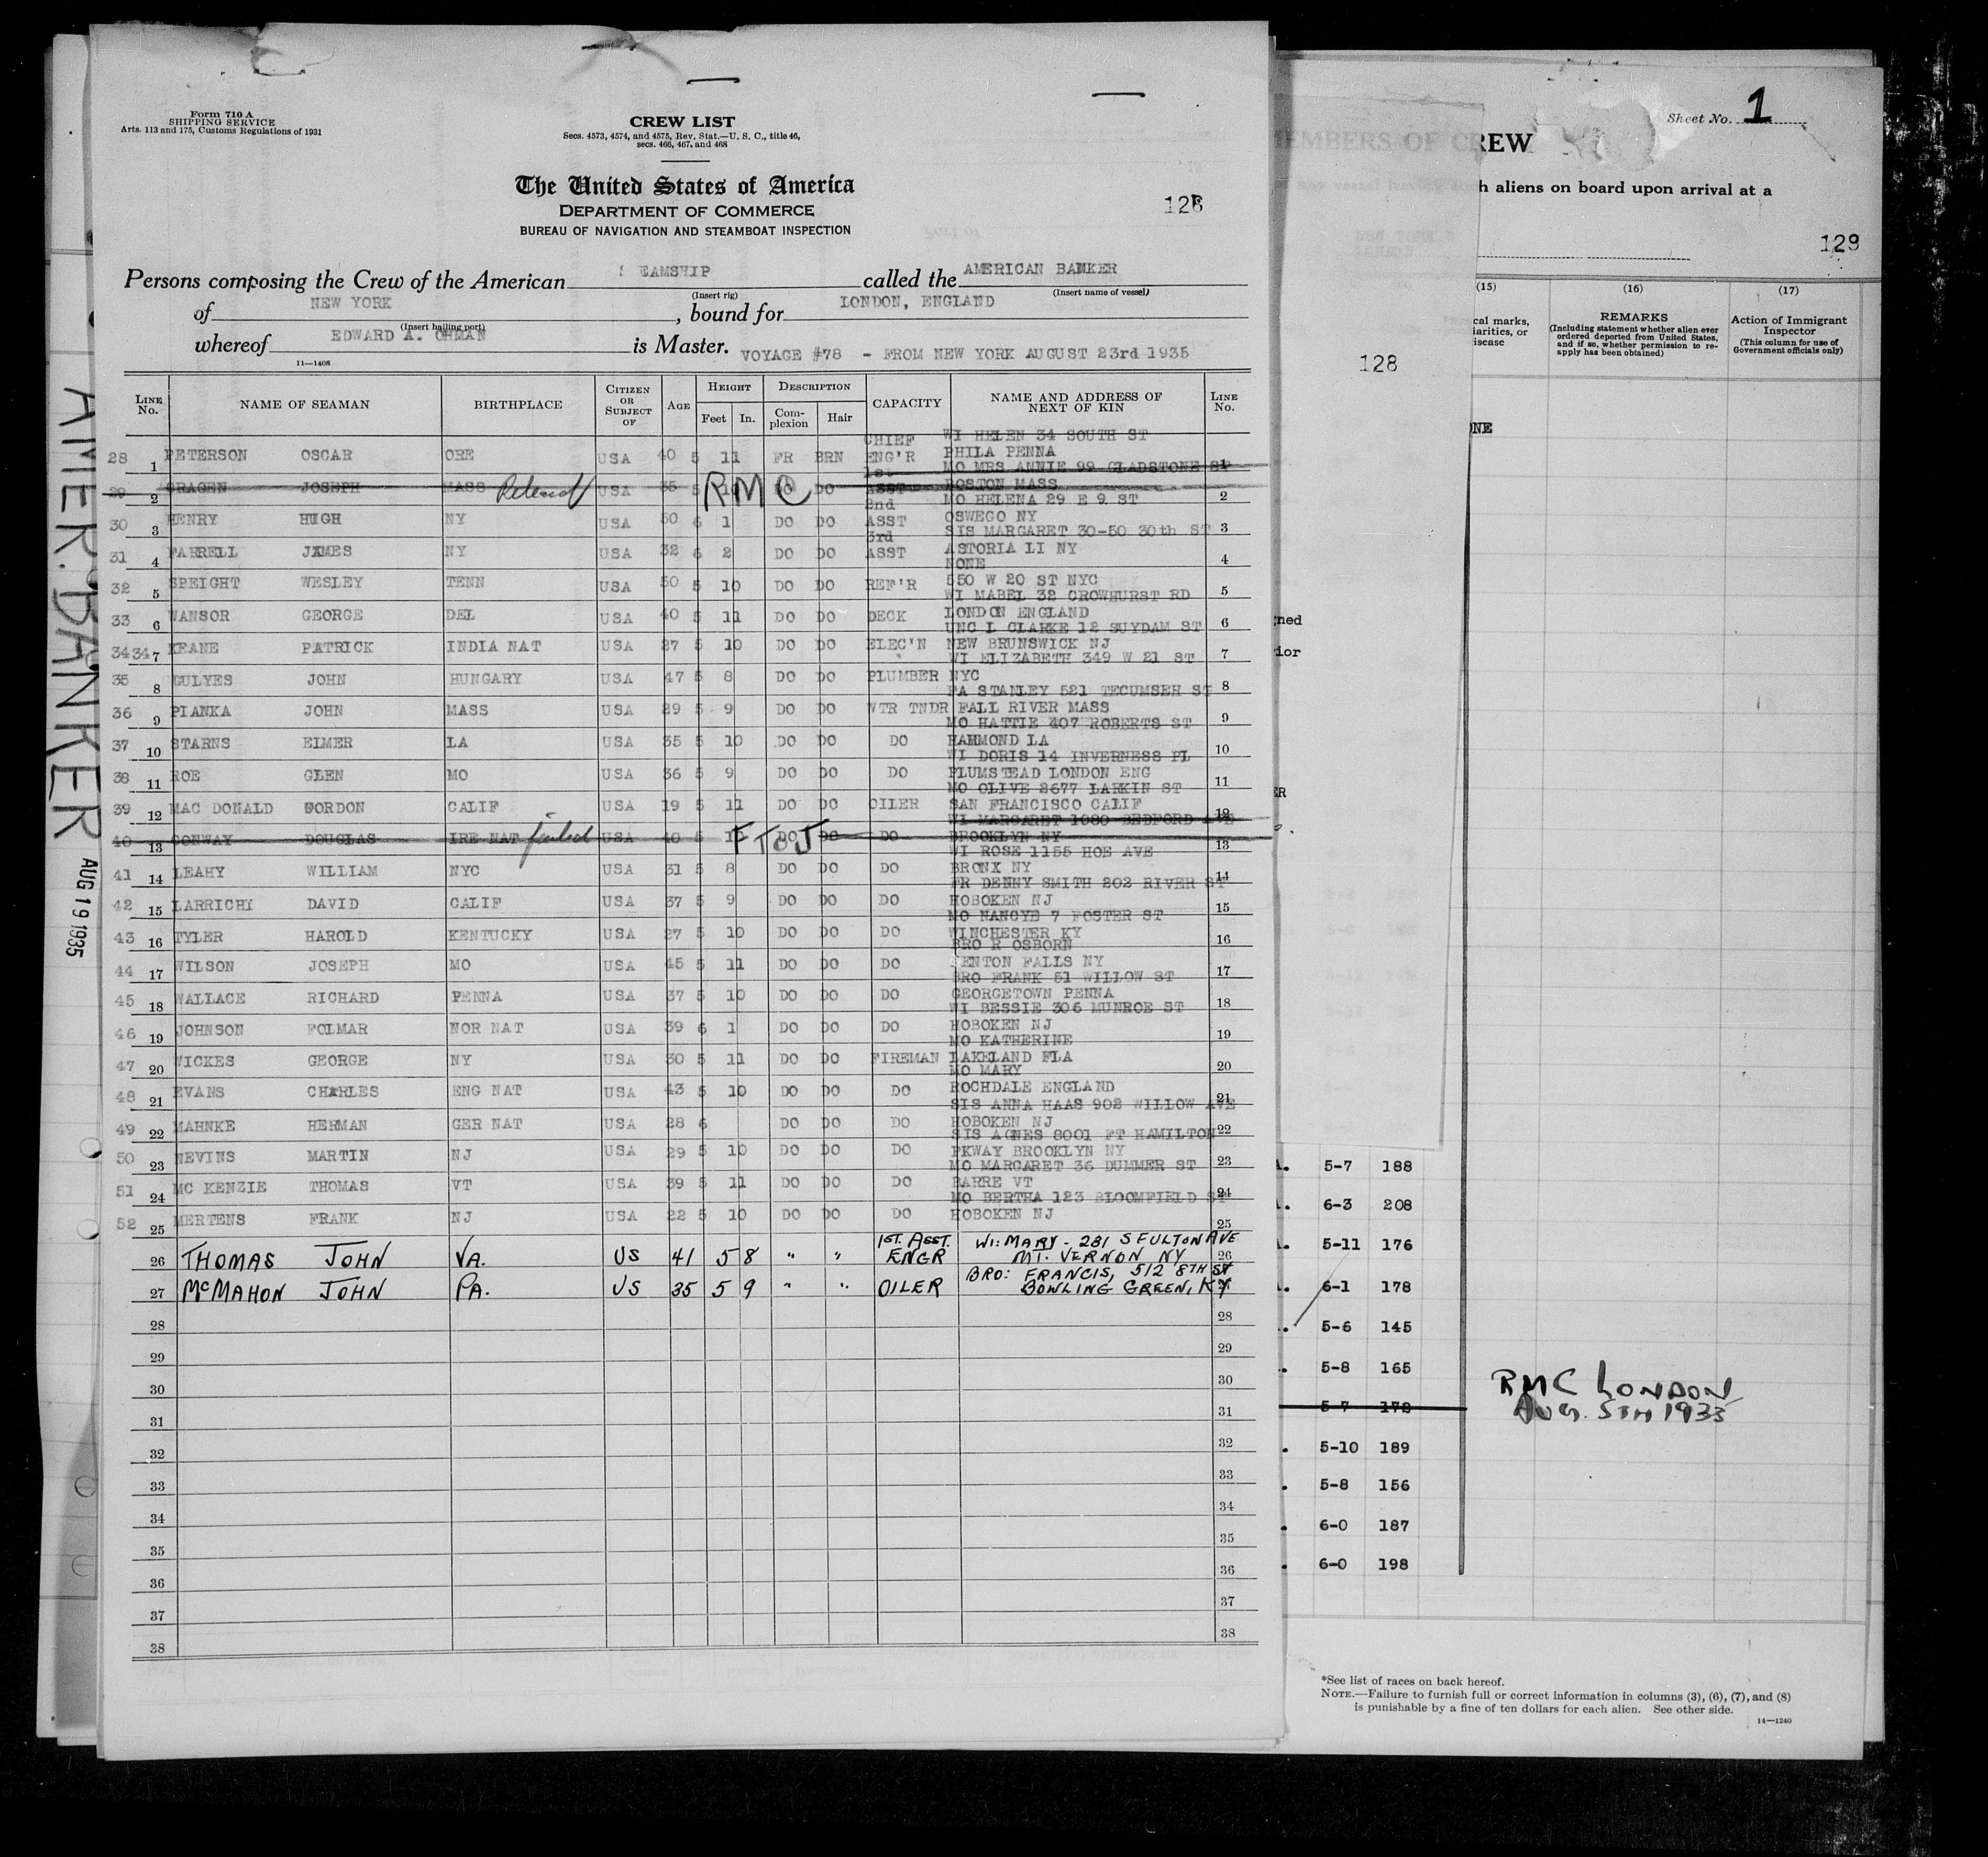 Form 710 A
SHIPPING SERVICE
Arts. 113 and 175, Customs Regulations of 1931
CREW LIST
Secs. 4573, 4574, and 4575, Rev. Stat.—U. S. C., title 46,
secs. 466, 467, and 468
The United States of America
DEPARTMENT OF COMMERCE
BUREAU OF NAVIGATION AND STEAMBOAT INSPECTION
128
Persons composing the Crew of the American EAMSHIP called the AMERICAN BANKER
(Insert rig) (Insert name of vessel)
of NEW YORK, bound for LONDON, ENGLAND
(Insert hailing port)
whereof EDWARD A. OHMAN is Master. VOYAGE #78 - FROM NEW YORK AUGUST 23rd 1935
11—1408
LINE No. NAME OF SEAMAN BIRTHPLACE CITIZEN OR SUBJECT OF AGE HEIGHT Feet In. DESCRIPTION Complexion Hair CAPACITY NAME AND ADDRESS OF NEXT OF KIN LINE No.
28 1 PETERSON OSCAR ORE USA 40 5 11 FR BRN CHIEF ENG'R WI HELEN 34 SOUTH ST PHILA PENNA 1
29 2 JOSEPH MASS USA 35 5 10 RMC DO DO 1st ASST MO MRS ANNIE 99 GLADSTONE ST BOSTON MASS 2
30 3 HENRY HUGH NY USA 50 6 1 DO DO 2nd ASST MO HELENA 29 E 9 ST OSWEGO NY 3
31 4 FARRELL JAMES NY USA 32 6 2 DO DO 3rd ASST SIS MARGARET 30-50 30th ST ASTORIA LI NY 4
32 5 SPEIGHT WESLEY TENN USA 50 5 10 DO DO REF'R NONE 550 W 20 ST NYC 5
33 6 WANSOR GEORGE DEL USA 40 5 11 DO DO DECK WI MABEL 32 CROWHURST RD LONDON ENGLAND 6
34 34 7 KEANE PATRICK INDIA NAT USA 27 5 10 DO DO ELEC'N UNC L CLARKE 12 SUYDAM ST NEW BRUNSWICK NJ 7
35 8 GULYES JOHN HUNGARY USA 47 5 8 DO DO PLUMBER WI ELIZABETH 349 W 21 ST NYC 8
36 9 PIANKA JOHN MASS USA 29 5 9 DO DO WTR TNDR FA STANLEY 521 TECUMSEH ST FALL RIVER MASS 9
37 10 STARNS ELMER LA USA 35 5 10 DO DO DO MO HATTIE 407 ROBERTS ST HAMMOND LA 10
38 11 ROE GLEN MO USA 36 5 9 DO DO DO WI DORIS 14 INVERNESS PL PLUMSTEAD LONDON ENG 11
39 12 MAC DONALD GORDON CALIF USA 19 5 11 DO DO OILER MO OLIVE 2677 LARKIN ST SAN FRANCISCO CALIF 12
40 13 CONWAY DOUGLAS IRE NAT failed USA 40 5 FTJ DO DO DO WI MARGARET 1080 BEDFORD AVE BROOKLYN NY 13
41 14 LEAHY WILLIAM NYC USA 31 5 8 DO DO DO WI ROSE 1155 HOE AVE BRONX NY 14
42 15 LARRICHY DAVID CALIF USA 37 5 9 DO DO DO FR DENNY SMITH 202 RIVER ST HOBOKEN NJ 15
43 16 TYLER HAROLD KENTUCKY USA 27 5 10 DO DO DO MO NANCYE 7 FOSTER ST WINCHESTER KY 16
44 17 WILSON JOSEPH MO USA 45 5 11 DO DO DO BRO R OSBORN FENTON FALLS NY 17
45 18 WALLACE RICHARD PENNA USA 37 5 10 DO DO DO BRO FRANK 51 WILLOW ST GEORGETOWN PENNA 18
46 19 JOHNSON FOLMAR NOR NAT USA 39 6 1 DO DO DO WI BESSIE 306 MUNROE ST HOBOKEN NJ 19
47 20 WICKES GEORGE NY USA 30 5 11 DO DO FIREMAN MO KATHERINE LAKELAND FLA 20
48 21 EVANS CHARLES ENG NAT USA 43 5 10 DO DO DO MO MARY ROCHDALE ENGLAND 21
49 22 MAHNKE HERMAN GER NAT USA 28 6 DO DO DO SIS ANNA HAAS 902 WILLOW AVE HOBOKEN NJ 22
50 23 NEVINS MARTIN NJ USA 29 5 10 DO DO DO SIS AGNES 8001 FT HAMILTON PKWAY BROOKLYN NY 23
51 24 MC KENZIE THOMAS VT USA 39 5 11 DO DO DO MO MARGARET 36 DUMMER ST BARRE VT 24
52 25 MERTENS FRANK NJ USA 22 5 10 DO DO DO MO BERTHA 123 BLOOMFIELD ST HOBOKEN NJ 25
26 THOMAS JOHN VA. US 41 5 8 " " 1ST. ASST. ENGR WI: MARY - 281 S FULTON AVE MT. VERNON NY 26
27 McMAHON JOHN PA. US 35 5 9 " " OILER BRO: FRANCIS, 512 8TH ST BOWLING GREEN, KY
28 28
29 29
30 30
31 31
32 32
33 33
34 34
35 35
36 36
37 37
38 38
AMER. BANKER
AUG 19 1935
Sheet No. 1
MEMBERS OF CREW
h aliens on board upon arrival at a
129
128
(15) (16) (17)
cal marks,
iarities, or
isease
REMARKS
(Including statement whether alien ever
ordered deported from United States,
and if so, whether permission to re-
apply has been obtained)
Action of Immigrant
Inspector
(This column for use of
Government officials only)
ONE
ned
ior
ER
5-7 188
6-3 208
5-11 176
6-1 178
5-6 145
5-8 165
5-7 172
5-10 189
5-8 156
6-0 187
6-0 198
RMC LONDON
AUG. 5TH 1935
*See list of races on back hereof.
NOTE.—Failure to furnish full or correct information in columns (3), (6), (7), and (8)
is punishable by a fine of ten dollars for each alien. See other side.
14—1240